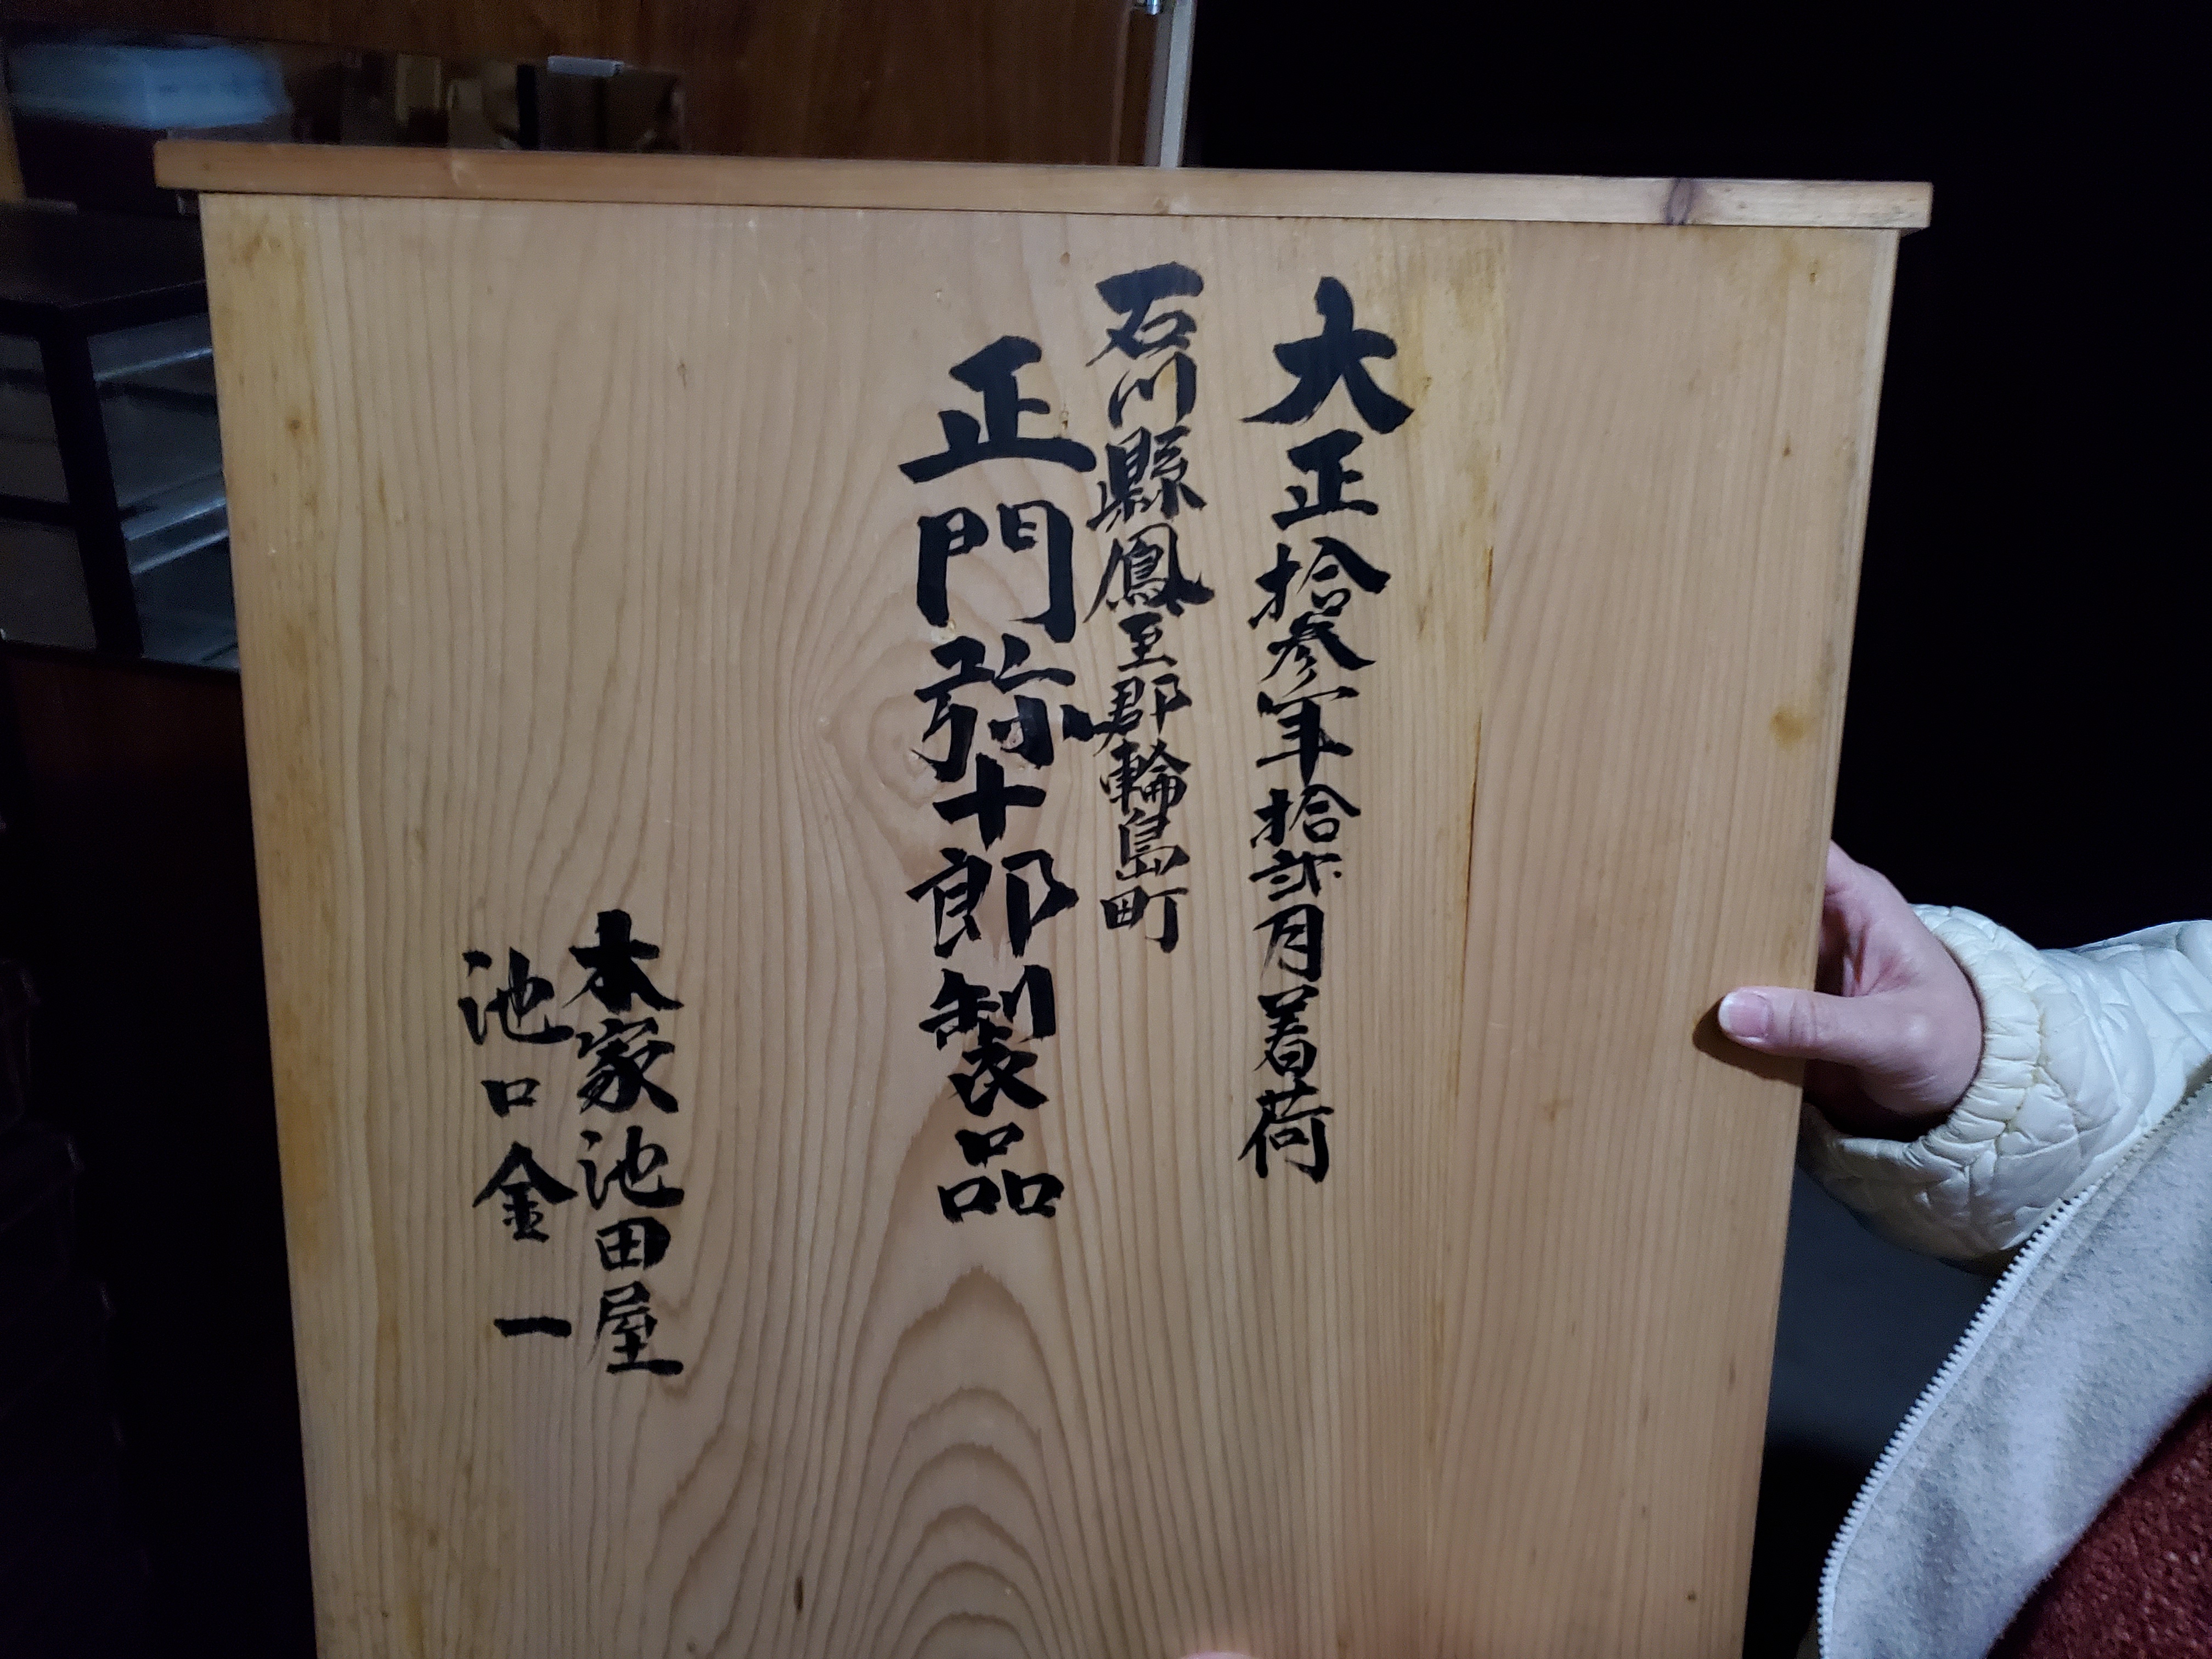 大正拾参年拾弐月着荷
石川縣鳳至郡輪島町
正門弥十郎製品
本家池田屋
池口金一